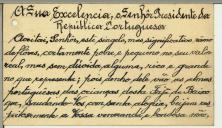 A Sua Excelencia, o Senhor Presidente da
República Portuguesa
Aceitai, Senhor, este singelo, mas significativo ramo
de flôres, certamente pobre e pequeno no seu valor
real, mas sem dúvida, alguma, rico e grande
no que representa; pois tendes dele as almas
portuguesas das crianças desta
que, saudando-vos com santa alegria, beijam res-
peitosamente a Vossa veneranda, e bondosa mão,